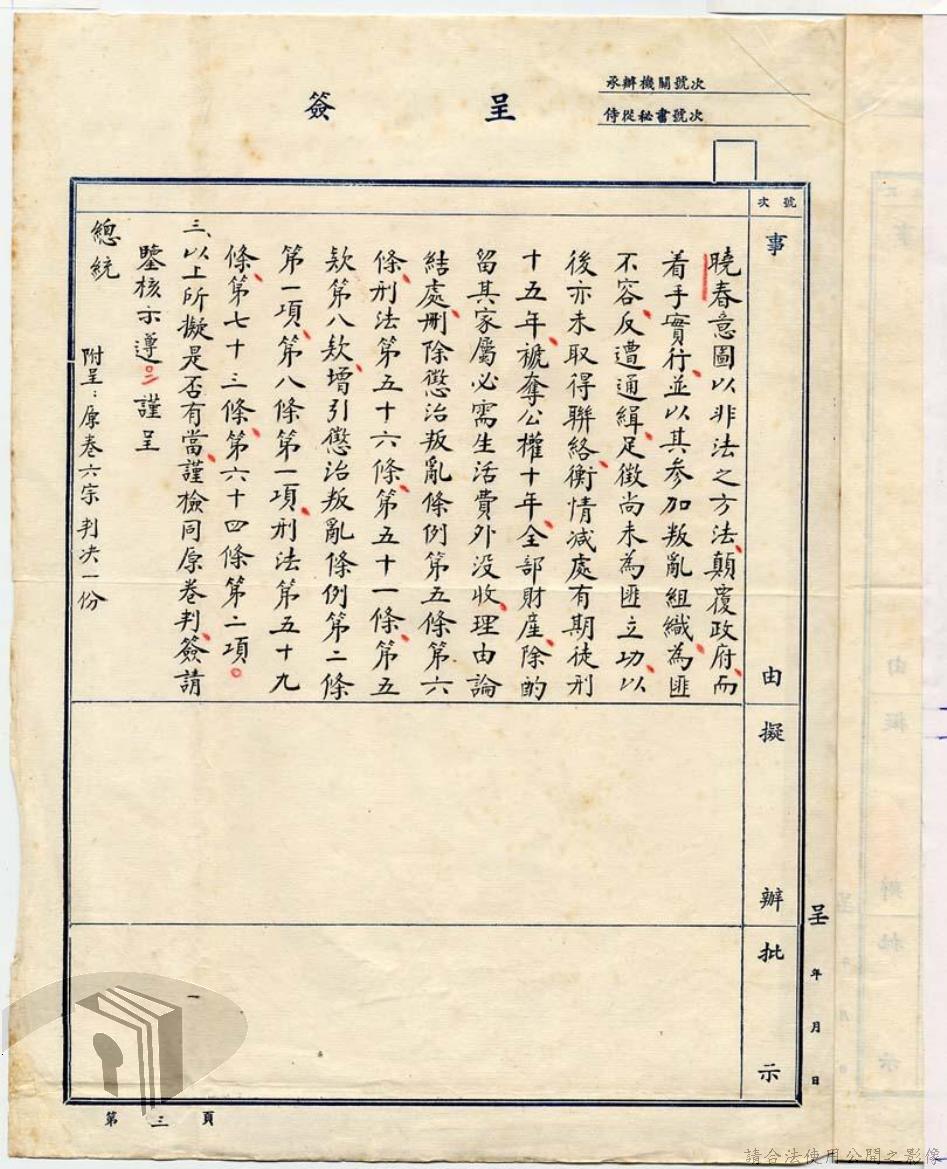 簽呈
承辦機關號次
侍從秘書號次
號次
事由
曉春意圖以非法之方法、顛覆政府、而
着手實行、並以其參加叛亂組織、為匪
不容、反遭通緝、足徵尚未為匪立功、以
後亦未取得聯絡、衡情減處有期徒刑
十五年、褫奪公權十年、全部財產、除酌
留其家屬必需生活費外没收、理由論
結處、刪除懲治叛亂條例第五條第六
條、刑法第五十六條、第五十一條、第五
款第八款、增引懲治叛亂條例第二條
第一項、第八條第一項、刑法第五十九
條、第七十三條、第六十四條第二項。
三、以上所擬是否有當、謹檢同原卷判、簽請
鑒核示遵謹呈
總統
附呈：原卷六宗判决一份
擬辦
批示
呈 年 月 日
第三頁
請合法使用公開之影像